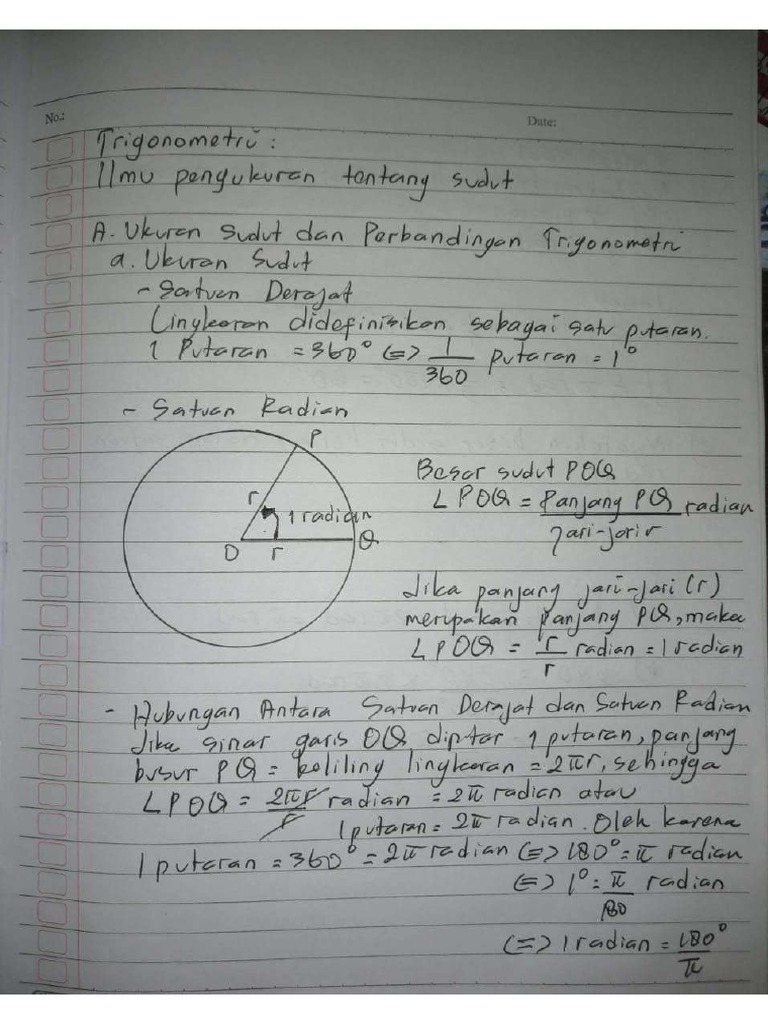 No.:
Date:
Trigonometri :
Ilmu pengukuran tentang sudut
A. Ukuran Sudut dan Perbandingan Trigonometri
a. Ukuran Sudut
- Satuan Derajat
Lingkaran didefinisikan sebagai satu putaran.
1 Putaran = 360° <=> 1/360 putaran = 1°
- Satuan Radian
P
r
1 radian
O
r
Q
Besar sudut POQ
∠POQ = Panjang PQ / Jari-jari r radian
Jika panjang jari-jari (r)
merupakan panjang PQ, maka
∠POQ = r/r radian = 1 radian
- Hubungan Antara Satuan Derajat dan Satuan Radian
Jika sinar garis OQ diputar 1 putaran, panjang
busur PQ = keliling lingkaran = 2πr, sehingga
∠POQ = 2πr/r radian = 2π radian atau
1 putaran = 2π radian. Oleh karena
1 putaran = 360° = 2π radian <=> 180° = π radian
<=> 1° = π/180 radian
<=> 1 radian = 180°/π